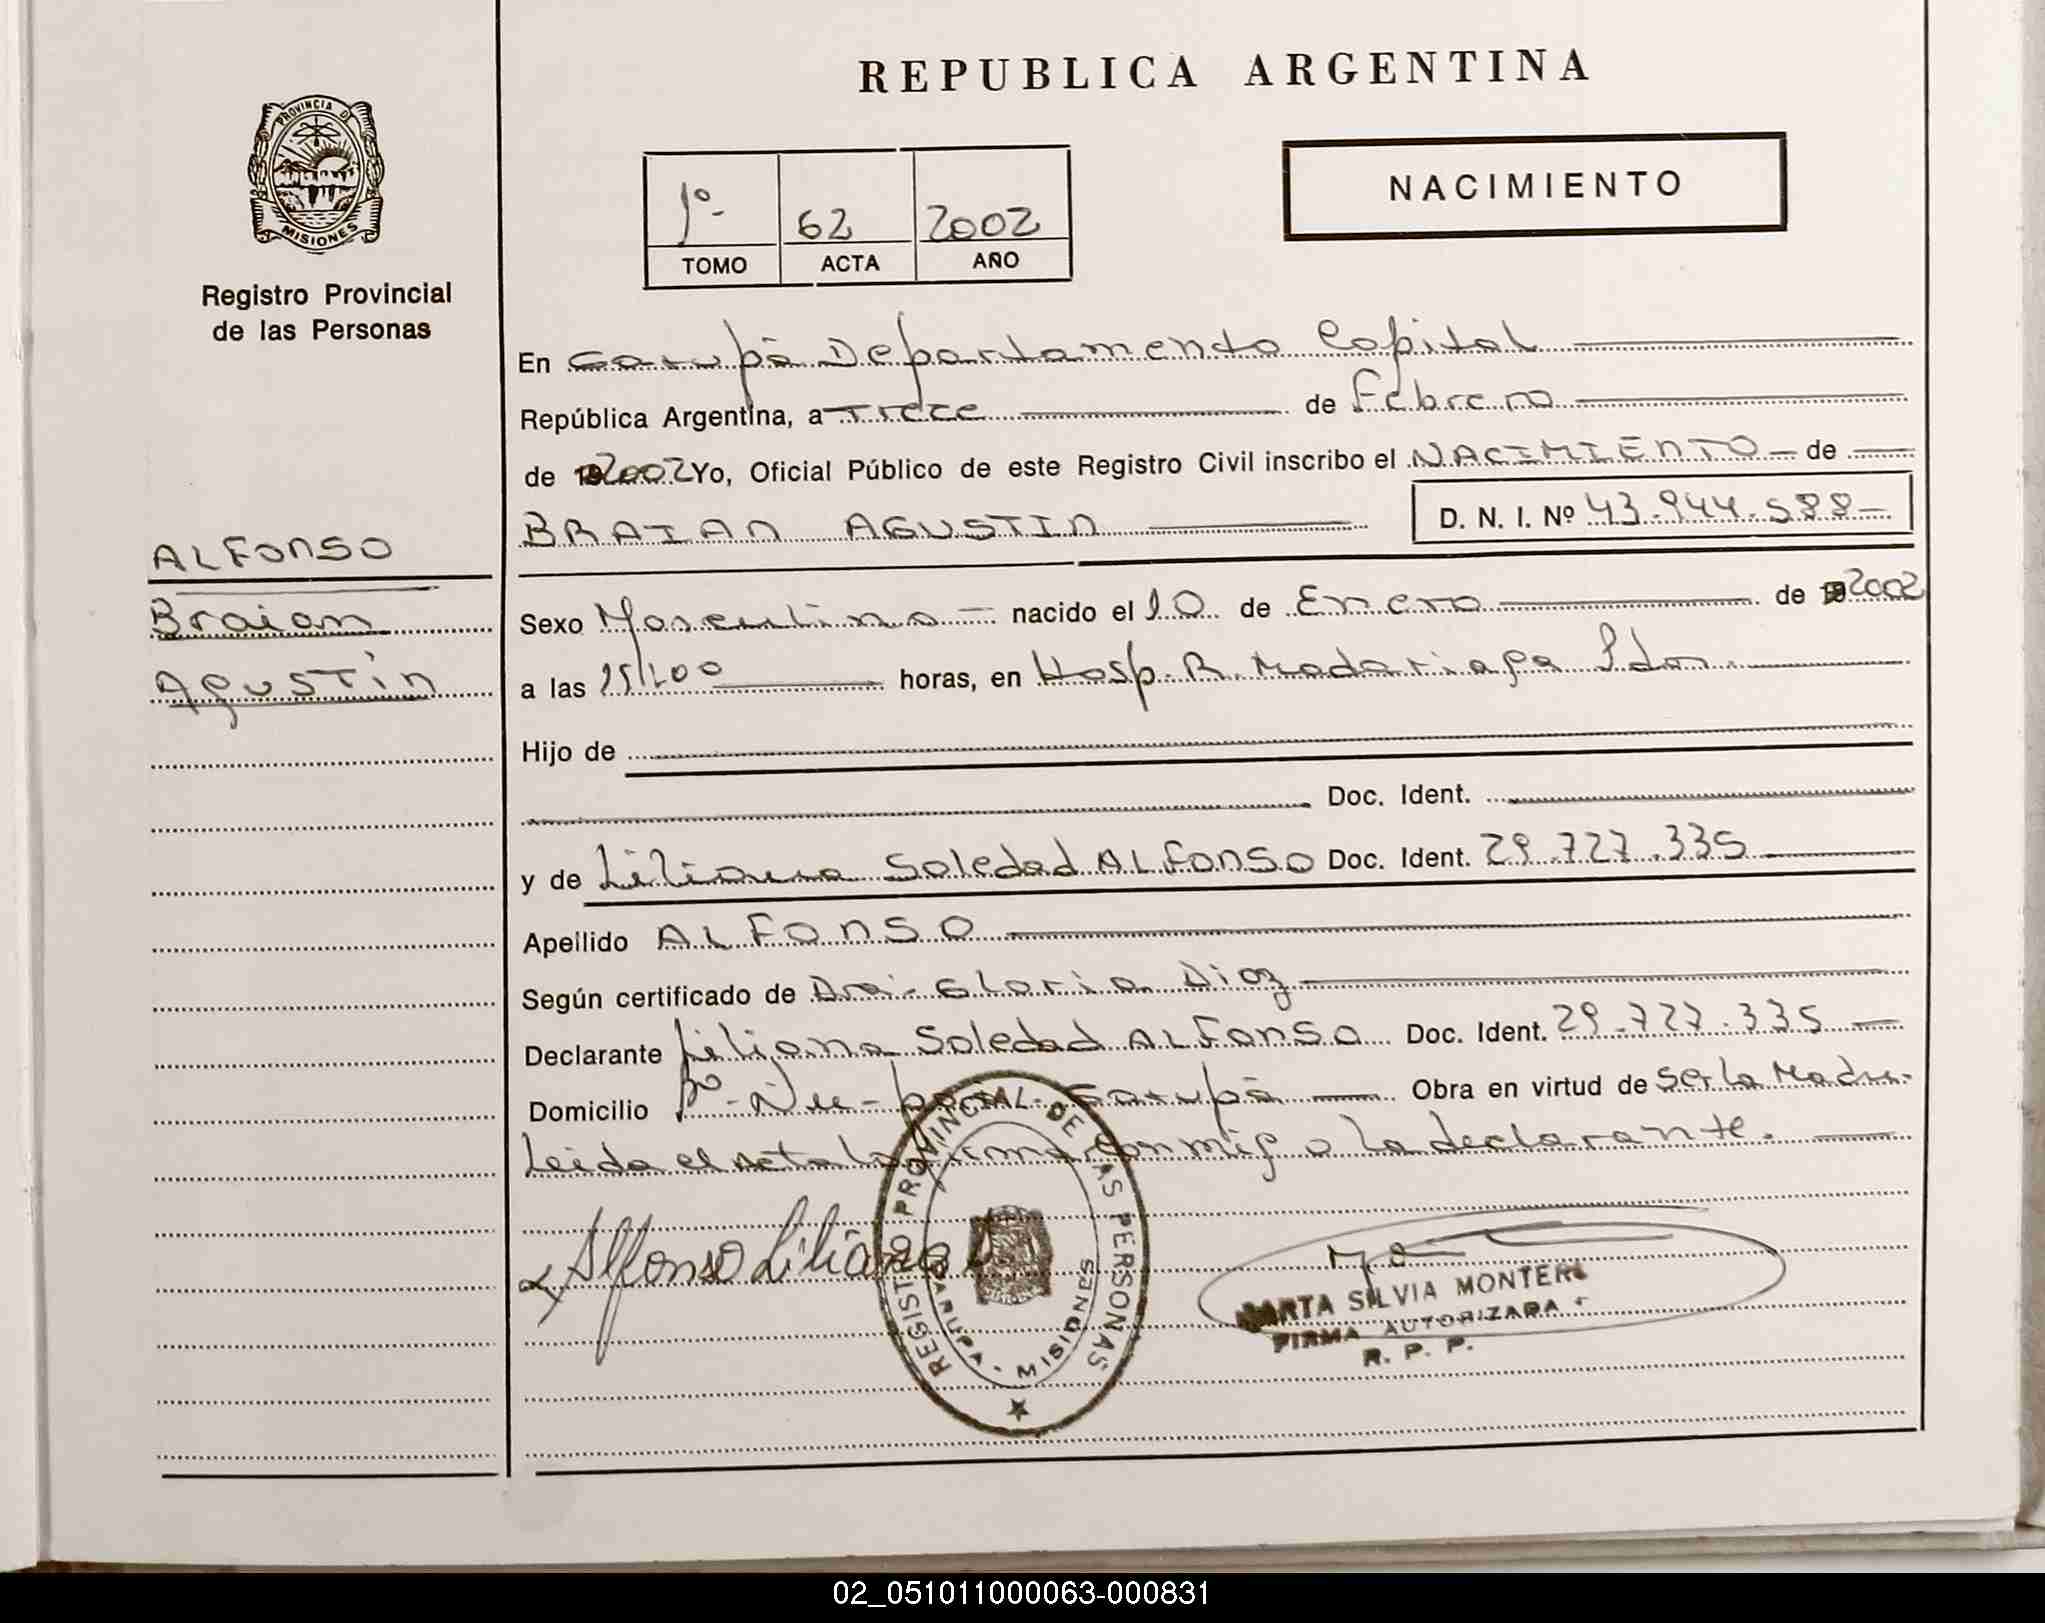 REPUBLICA ARGENTINA
PROVINCIA DE
MISIONES
Registro Provincial
de las Personas
1º- 62 2002
TOMO ACTA AÑO
NACIMIENTO
En Garupá Departamento Capital
República Argentina, a Trece de Febrero
de 2002 Yo, Oficial Público de este Registro Civil inscribo el NACIMIENTO de
BRAIAN AGUSTIN D. N. I. Nº 43.944.588-
ALFONSO
Braian
Agustín
Sexo Masculino nacido el 10 de Enero de 2002
a las horas, en Hosp. R. Madariaga Pdas.
Hijo de
Doc. Ident.
y de Liliana Soledad ALFONSO Doc. Ident. 29.727.335
Apellido ALFONSO
Según certificado de Dra. Gloria Diaz
Declarante Liliana Soledad ALFONSO Doc. Ident. 29.727.335
Domicilio Garupá Obra en virtud de ser la Madre.
Leida el acta la firma conmigo la declarante.
Alfonso Liliana S
REGISTRO PROVINCIAL DE LAS PERSONAS
GARUPA - MISIONES
MARTA SILVIA MONTERO
FIRMA AUTORIZADA
R. P. P.
02_051011000063-000831